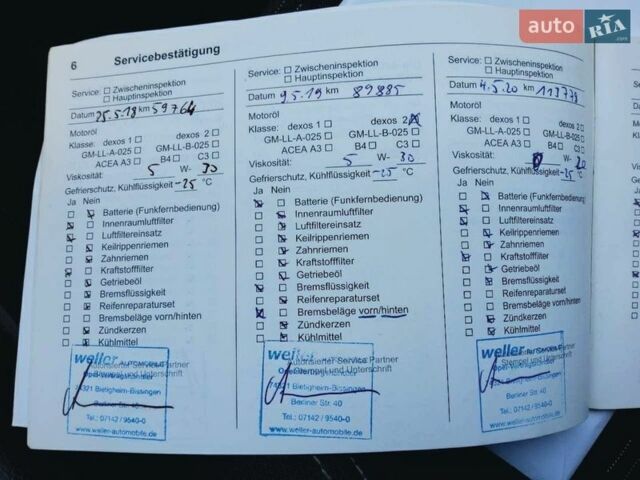 auto RIA.com
6 Servicebestätigung
Service: □ Zwischeninspektion
□ Hauptinspektion
Datum 25.5.18 km 59764
Motoröl
Klasse: dexos 1 □ dexos 2 □
GM-LL-A-025 □ GM-LL-B-025 □
ACEA A3 □ B4 □ C3 □
Viskosität: 5 W- 30
Gefrierschutz, Kühlflüssigkeit -25 °C
Ja Nein
Batterie (Funkfernbedienung)
Innenraumluftfilter
Luftfiltereinsatz
Keilrippenriemen
Zahnriemen
Kraftstofffilter
Getriebeöl
Bremsflüssigkeit
Reifenreparaturset
Bremsbeläge vorn/hinten
Zündkerzen
Kühlmittel
weller AUTOMOBILE
Autorisierter Service Partner
Opel-Vertragshändler
Stempel und Unterschrift
74321 Bietigheim-Bissingen
Berliner Str. 40
Tel.: 07142 / 9540-0
www.weller-automobile.de
Service: □ Zwischeninspektion
□ Hauptinspektion
Datum 9.5.19 km 89885
Motoröl
Klasse: dexos 1 □ dexos 2 ☒
GM-LL-A-025 □ GM-LL-B-025 □
ACEA A3 □ B4 □ C3 □
Viskosität: 5 W- 30
Gefrierschutz, Kühlflüssigkeit -25 °C
Ja Nein
Batterie (Funkfernbedienung)
Innenraumluftfilter
Luftfiltereinsatz
Keilrippenriemen
Zahnriemen
Kraftstofffilter
Getriebeöl
Bremsflüssigkeit
Reifenreparaturset
Bremsbeläge vorn/hinten
Zündkerzen
Kühlmittel
weller AUTOMOBILE
Autorisierter Service Partner
Stempel und Unterschrift
74321 Bietigheim-Bissingen
Berliner Str. 40
Tel.: 07142 / 9540-0
www.weller-automobile.de
Service: □ Zwischeninspektion
□ Hauptinspektion
Datum 4.5.20 km
Motoröl
Klasse: dexos 1 □ dexos 2 □
GM-LL-A-025 □ GM-LL-B-025 □
ACEA A3 □ B4 □ C3 □
Viskosität: 0 W- 20
Gefrierschutz, Kühlflüssigkeit -25 °C
Ja Nein
Batterie (Funkfernbedienung)
Innenraumluftfilter
Luftfiltereinsatz
Keilrippenriemen
Zahnriemen
Kraftstofffilter
Getriebeöl
Bremsflüssigkeit
Reifenreparaturset
Bremsbeläge vorn/hinten
Zündkerzen
Kühlmittel
weller AUTOMOBILE
Autorisierter Service Partner
Opel-Vertragshändler
Stempel und Unterschrift
74321 Bietigheim-Bissingen
Berliner Str. 40
Tel.: 07142 / 9540-0
www.weller-automobile.de